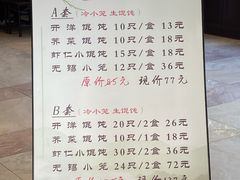 A套（冷小笼 生馄饨）
开洋馄饨 10只/1盒 13元
荠菜馄饨 10只/1盒 18元
虾仁小馄饨 15只/1盒 18元
无锡小笼 12只/1盒 36元
原价85元 现价77元
B套（冷小笼 生馄饨）
开洋馄饨 20只/2盒 26元
荠菜馄饨 10只/1盒 18元
虾仁小馄饨 30只/2盒 36元
无锡小笼 24只/2盒 72元